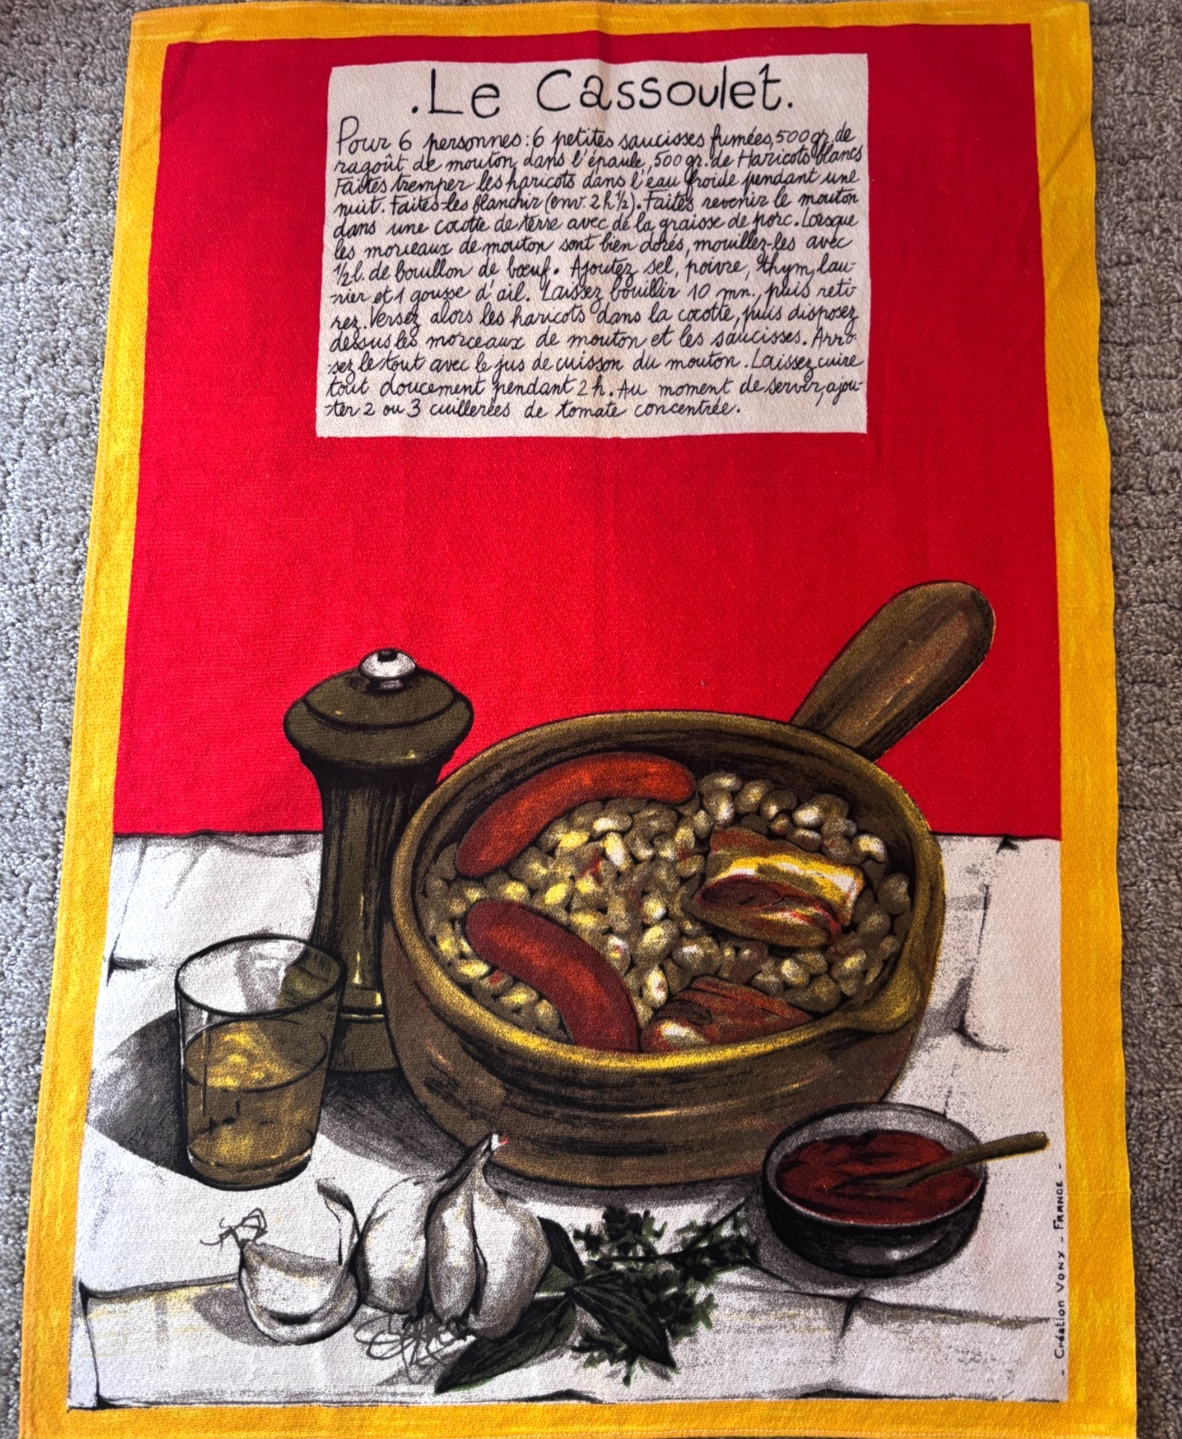 .Le Cassoulet.
Pour 6 personnes: 6 petites saucisses fumées, 500 gr. de
ragoût de mouton, dans l'épaule, 500 gr. de Haricots blancs
Faites tremper les haricots dans l'eau froide pendant une
nuit. Faites-les blanchir (env. 2 h ½). Faites revenir le mouton
dans une cocotte de terre avec de la graisse de porc. Lorsque
les morceaux de mouton sont bien dorés, mouillez-les avec
½ l. de bouillon de bœuf. Ajoutez sel, poivre, thym, lau-
-rier et 1 gousse d'ail. Laissez bouillir 10 mn., puis reti-
rez. Versez alors les haricots dans la cocotte, puis disposez
dessus les morceaux de mouton et les saucisses. Arro-
-sez le tout avec le jus de cuisson du mouton. Laissez cuire
tout doucement pendant 2 h. Au moment de servir, ajou-
-ter 2 ou 3 cuillerées de tomate concentrée.
- Création VONY - FRANCE -